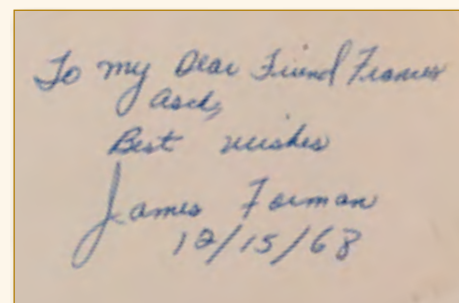 To my Dear Friend Frances
Asch,
Best wishes
James Forman
12/15/68